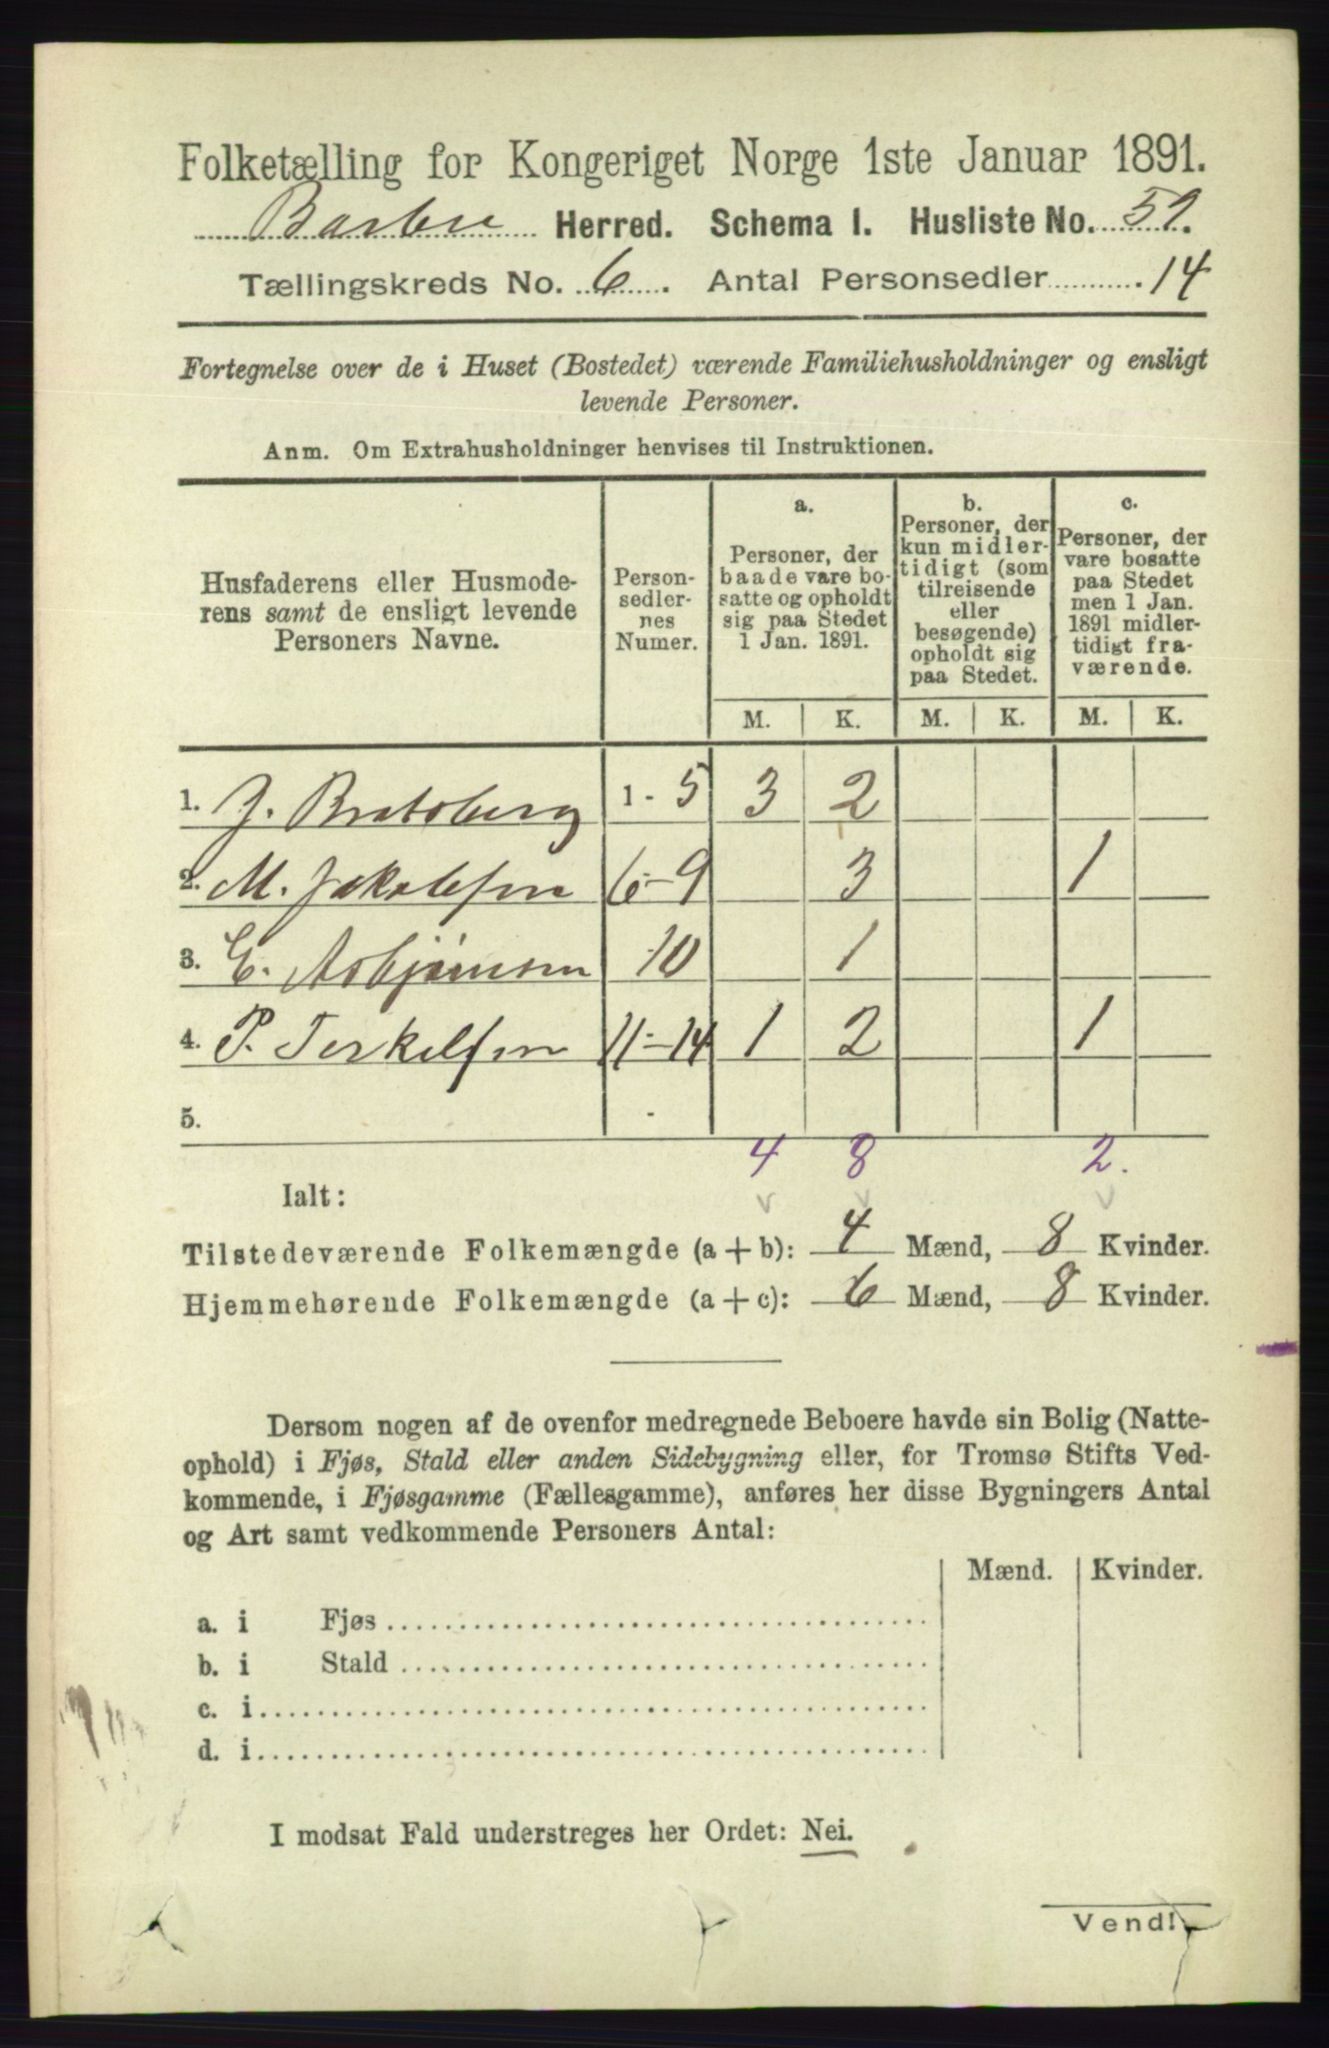 Folketælling for Kongeriget Norge 1ste Januar 1891.
Barbu Herred. Schema I. Husliste No. 59.
Tællingskreds No. 6. Antal Personsedler 14
Fortegnelse over de i Huset (Bostedet) værende Familiehusholdninger og ensligt
levende Personer.
Anm. Om Extrahusholdninger henvises til Instruktionen.
Husfaderens eller Husmode-
rens samt de ensligt levende
Personers Navne.
Person-
sedler-
nes
Numer.
a.
Personer, der
baade vare bo-
satte og opholdt
sig paa Stedet
1 Jan. 1891.
b.
Personer, der
kun midler-
tidigt (som
tilreisende
eller
besøgende)
opholdt sig
paa Stedet.
c.
Personer, der
vare bosatte
paa Stedet
men 1 Jan.
1891 midler-
tidigt fra-
værende.
M. K. M. K. M. K.
1. J. Bratsberg 1 - 5 3 2
2. M. Jakobsen 6-9 3 1
3. E. Asbjørnsen 10 1
4. P. Terkelsen 11-14 1 2 1
5. -
4 8 2.
Ialt:
Tilstedeværende Folkemængde (a+b): 4 Mænd, 8 Kvinder.
Hjemmehørende Folkemængde (a+c): 6 Mænd, 8 Kvinder.
Dersom nogen af de ovenfor medregnede Beboere havde sin Bolig (Natte-
ophold) i Fjøs, Stald eller anden Sidebygning eller, for Tromsø Stifts Ved-
kommende, i Fjøsgamme (Fællesgamme), anføres her disse Bygningers Antal
og Art samt vedkommende Personers Antal:
Mænd. Kvinder.
a. i Fjøs
b. i Stald
c. i
d. i
I modsat Fald understreges her Ordet: Nei.
Vend!